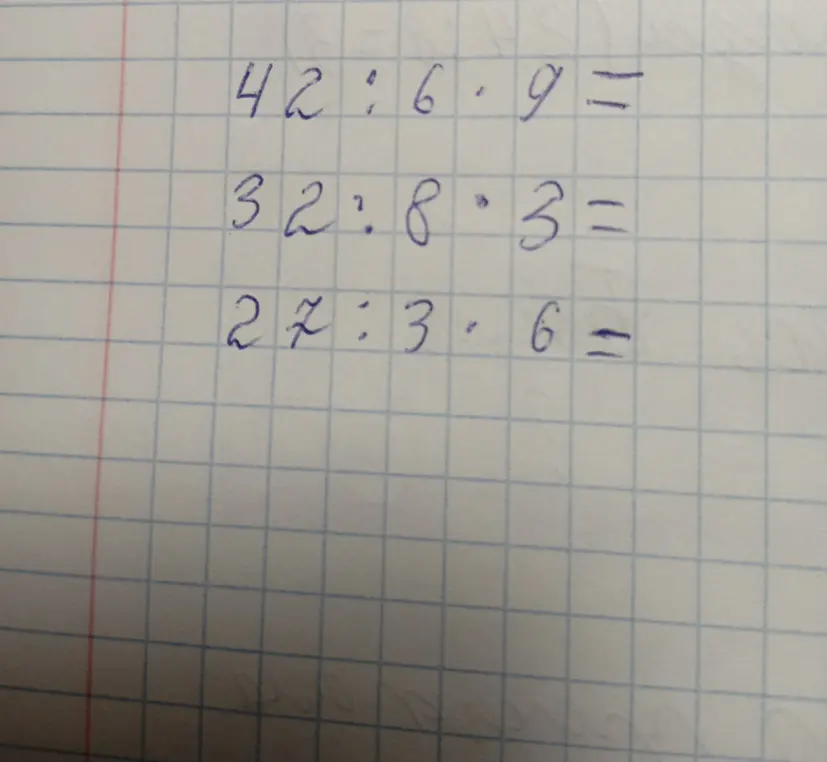 42 : 6 · 9 =
32 : 8 · 3 =
27 : 3 · 6 =